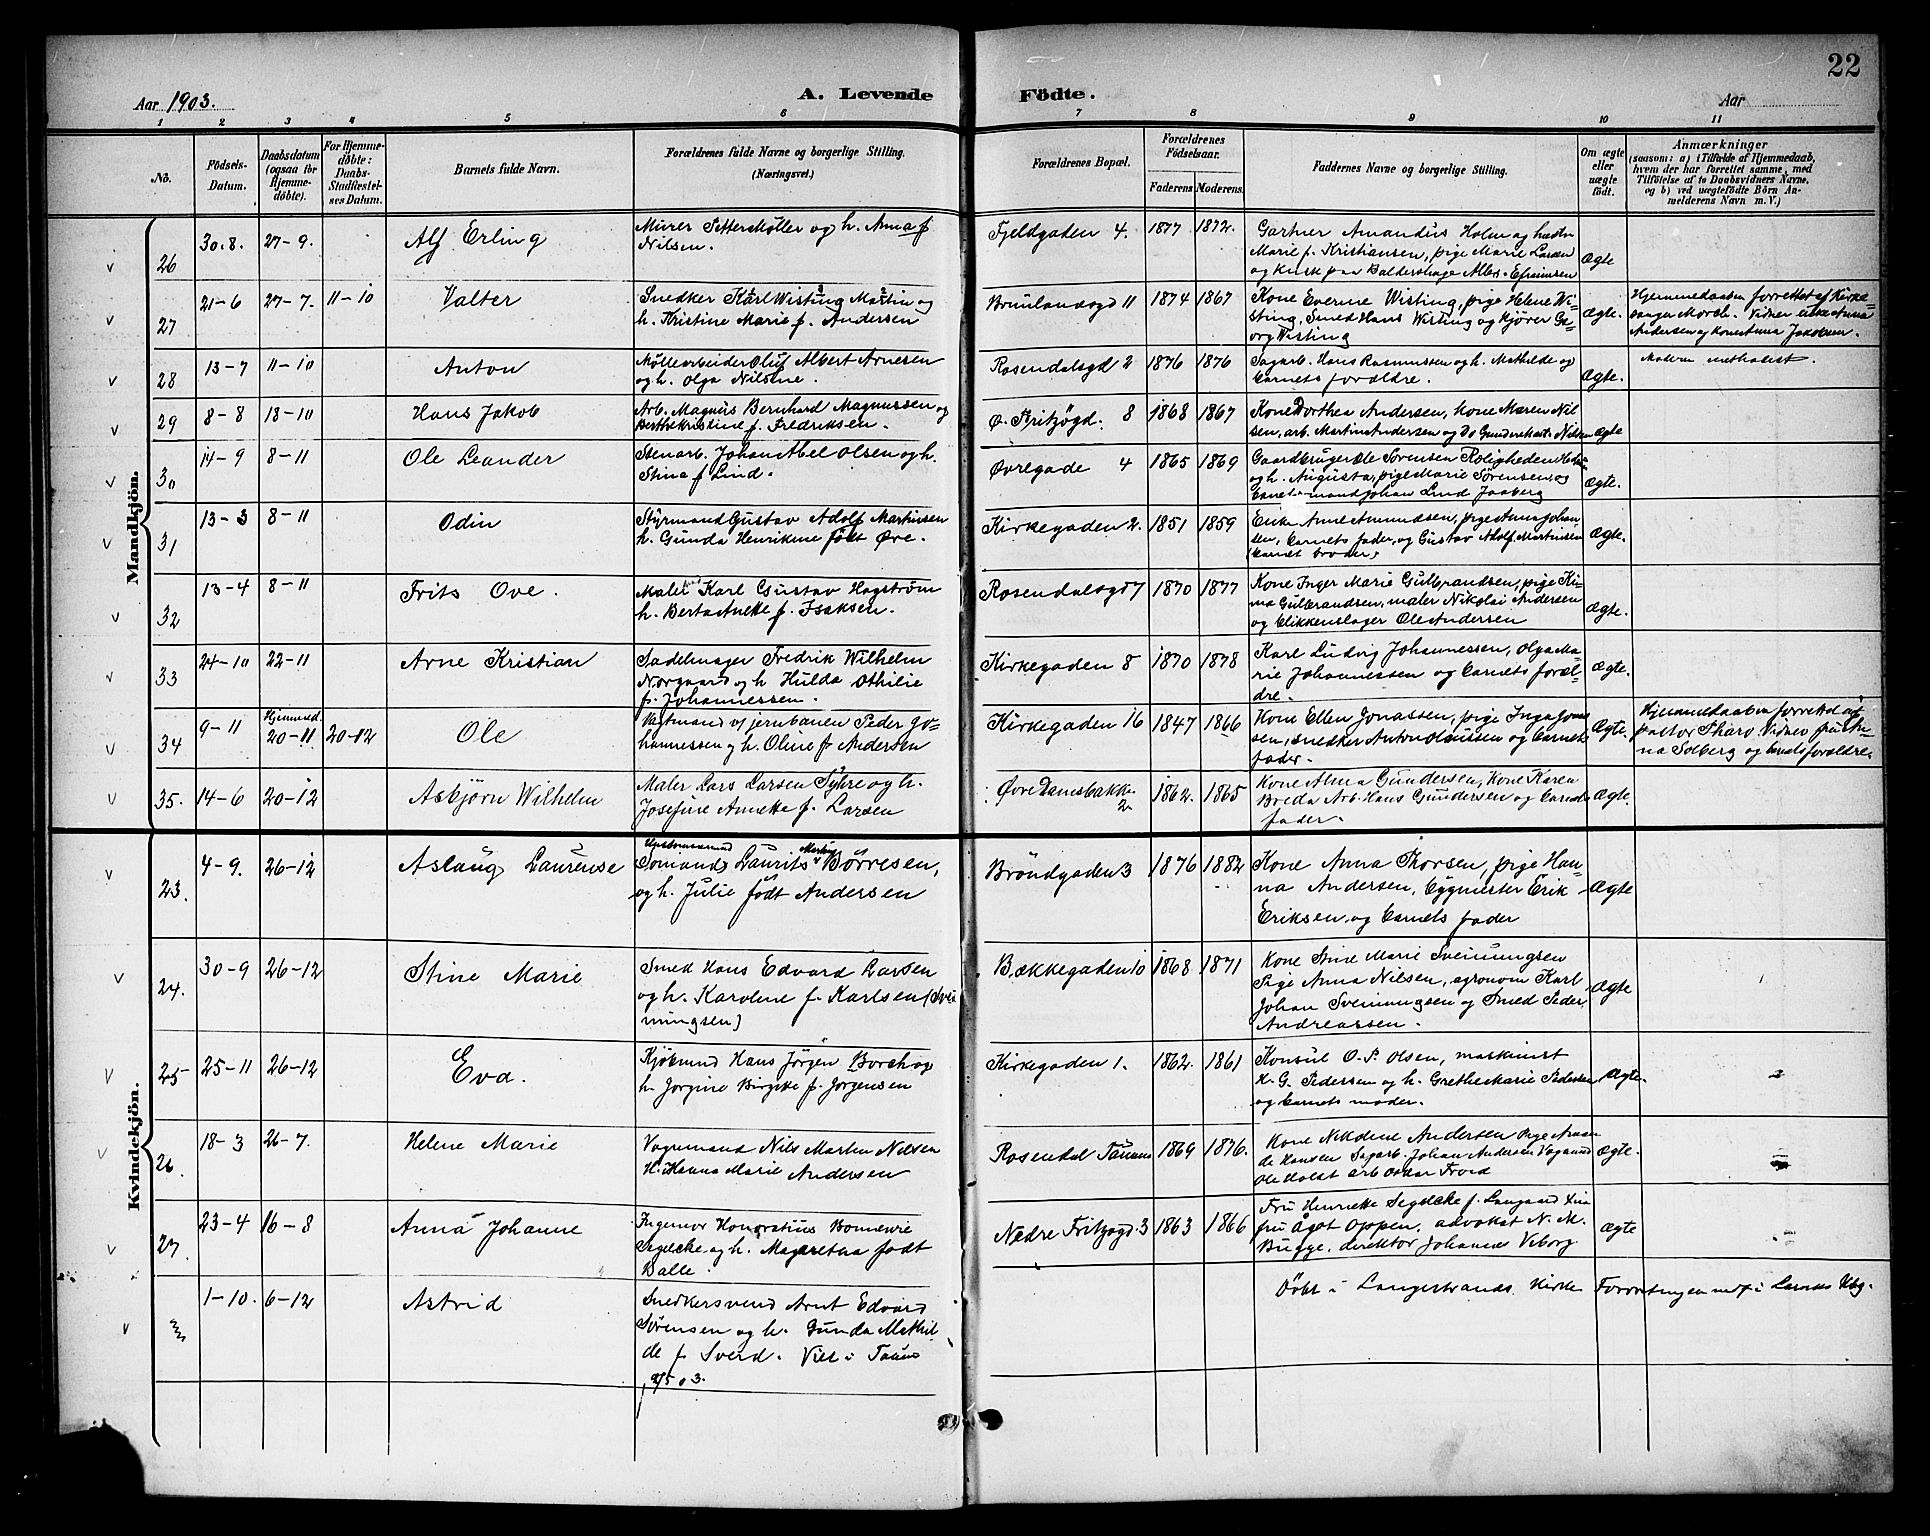 22
Aar 1903.
A. Levende Födte.
Aar
1 2 3 4 5 6 7 8 9 10 11
No.
Födsels-Datum.
Daabsdatum (ogsaa for Hjemme-døbte).
For Hjemme-døbte: Daabs-Stadfæstel-ses Datum.
Barnets fulde Navn.
Forældrenes fulde Navne og borgerlige Stilling.
(Næringsvei.)
Forældrenes Bopæl.
Forældrenes Födselsaar.
Faderens Moderens.
Faddernes Navne og borgerlige Stilling.
Om ægte eller uægte födt.
Anmærkninger
(saasom: a) i Tilfælde af Hjemmedaab,
hvem der har forrettet samme, med
Tilföielse af to Daabsvidners Navne,
og b) ved uægtefödte Börn An-
melderens Navn m. V.)
Mandkjön.
26 30.8. 27-9. Alf Erling
Murer Petter Møller og h. Anna f.
Nilsen.
Fjeldgaden 4. 1877 1872.
Gartner Amandus Holm og hustru
Marie f. Kristiansen, pige Marie Larsen
og Kusk paa Baldershage Alb. Efraimsen
Ægte
27 21-6 27-7. 11-10 Valter
Snedker Karl Wisting Martin og
h. Kristine Marie f. Andersen
Brunlanæsgd 11 1874 1867
Kone Everine Wisting, pige Helene Wi-
sting, Smed Hans Wisting og kjører Ge-
org Wisting
Ægte.
Hjemmedaaben forrettet af Kirke-
sanger Morch. Vidner enke Anna
Andersen og Kone Anna Jakobsen.
28 13-7 11-10 Anton
Møllearbeider Oluf Albert Arnesen
og h. Olga Nilsine.
Rosendalsgd 2 1876 1876
Sagarb. Hans Rasmussen og h. Mathilde og
barnets forældre.
Ægte.
Moderen methodist.
29 8-8 18-10 Hans Jakob
Arb. Magnus Bernhard Magnussen og
Berthe Kristine f. Fredriksen.
Ø. Fritzögd. 8 1868 1867
Kone Dorthea Andersen, kone Maren Nil
sen, arb. Martin Andersen og Do Gunder Nilsen
Ægte
30 14-9 8-11 Ole Leander
Stenarb. Johan Abel Olsen og h.
Stina f. Lind.
Øvregade 4 1865 1869
Gaardbruger Ole Sörensen Roligheden
og h. Augusta, pige Marie Sörensen, og
mand Johan Lind Jaaberg
Ægte.
31 13-3 8-11 Odin
Styrmand Gustav Adolf Martinsen
h. Gunda Henrikine født Øve.
Kirkegaden 2. 1851 1859
Enke Anne Amundsen, pige Anna Johan
sen, barnets fader, og Gustav Adolf Martinsen
(barnets broder)
Ægte.
32 13-4 8-11 Frits Ove.
Maler Karl Gustav Hagström
h. Berta Anette f. Isaksen.
Rosendalsgd 7 1870 1877
Kone Inger Marie Gulbrandsen, pige Ki-
ma Gulbrandsen, maler Nikolai Andersen
og blikkenslager Ole Andersen
Ægte.
33 24-10 22-11 Arne Kristian
Sadelmager Fredrik Wilhelm
Norgaard og h Hulda Othilie
f. Johannessen.
Kirkegaden 8 1870 1878
Karl Ludvig Johannessen, Olga Ma-
rie Johannessen og barnets foræl-
dre.
Ægte.
34 9-11 Hjemmed. 20-11 20-12 Ole
Vagtmand v/ jernbanen Peder Jo-
hannessen og h. Oline f. Andersen
Kirkegaden 16 1847 1866
Kone Ellen Jonassen, pige Inga Jonas
sen, snedker Anton Olaussen og barnets
fader.
Ægte.
Hjemmedaaben forrettet af
pastor Tharo, Vidner frk An-
na Solberg og barnets forældre
35. 14-6 20-12 Asbjörn Wilhelm
Maler Lars Larsen Sykre og h.
Josefine Annette f. Larsen
Øvre Damsbakke
2
1862. 1865
Kone Alma Gundersen, Kone Karen
Breda Arb. Hans Gundersen og barnets
fader.
Ægte.
Kvindekjön.
23. 4-9. 26-12 Aslaug Laurense
Sömand Laurits Martin Börresen,
og h. Julie født Andersen
Bröndgaden 3 1876 1882
Kone Anna Thorsen, pige Han-
na Andersen, bygmester Erik
Eriksen, og barnets fader
Ægte
24. 30-9 26-12 Stine Marie
Smed Hans Edvard Larsen
og h. Karoline f. Karlsen (Svei
ningsen)
Bækkegaden 10 1868 1871
Kone Stine Marie Sveinungsen
Pige Anna Nilsen, agronom Karl
Johan Sveinungsen og Smed Peder
Andreassen.
Ægte
25 25-11 26-12 Eva.
Kjöbmd Hans Jörgen Borch og
h. Jorgine Birgitte f. Jorgensen
Kirkegaden 1. 1862. 1861
Konsul O. P. Olsen, maskinist
K. G. Pedersen og h. Grethe Marie Pedersen
og barnets moder.
Ægte.
26. 18-3 26-7. Helene Marie
Vognmand Nils Martin Nilsen
H. Hanna Marie Andersen
Rosendal Tanum 1869 1876.
Kone Nikoline Andersen Pige Aman
da Hansen Sagarb. Johan Andersen Vognmd
Ole Holst arb Oskar Froid
Ægte.
27. 23-4 16-8 Anna Johanne
Ingeniør Honoratius Bonnevie
Segelcke og h. Magaretaa født
Balle.
Nedre Fritzøgd. 3 1863 1866
Fru Henriette Segelcke f. Langaard
fru Ågot Oppen. advokat N. M.
Bugge. direktör Johannes Viborg
Ægte
1-10. 6-12 Astrid
Snedkersvend Arnt Edvard
Sörensen og h. Gunda Mathil-
de f. Sverd. Viet i Tanum
1903.
Döbt i Langestrands Kirke Forretningen indf i Larviks Kbg.